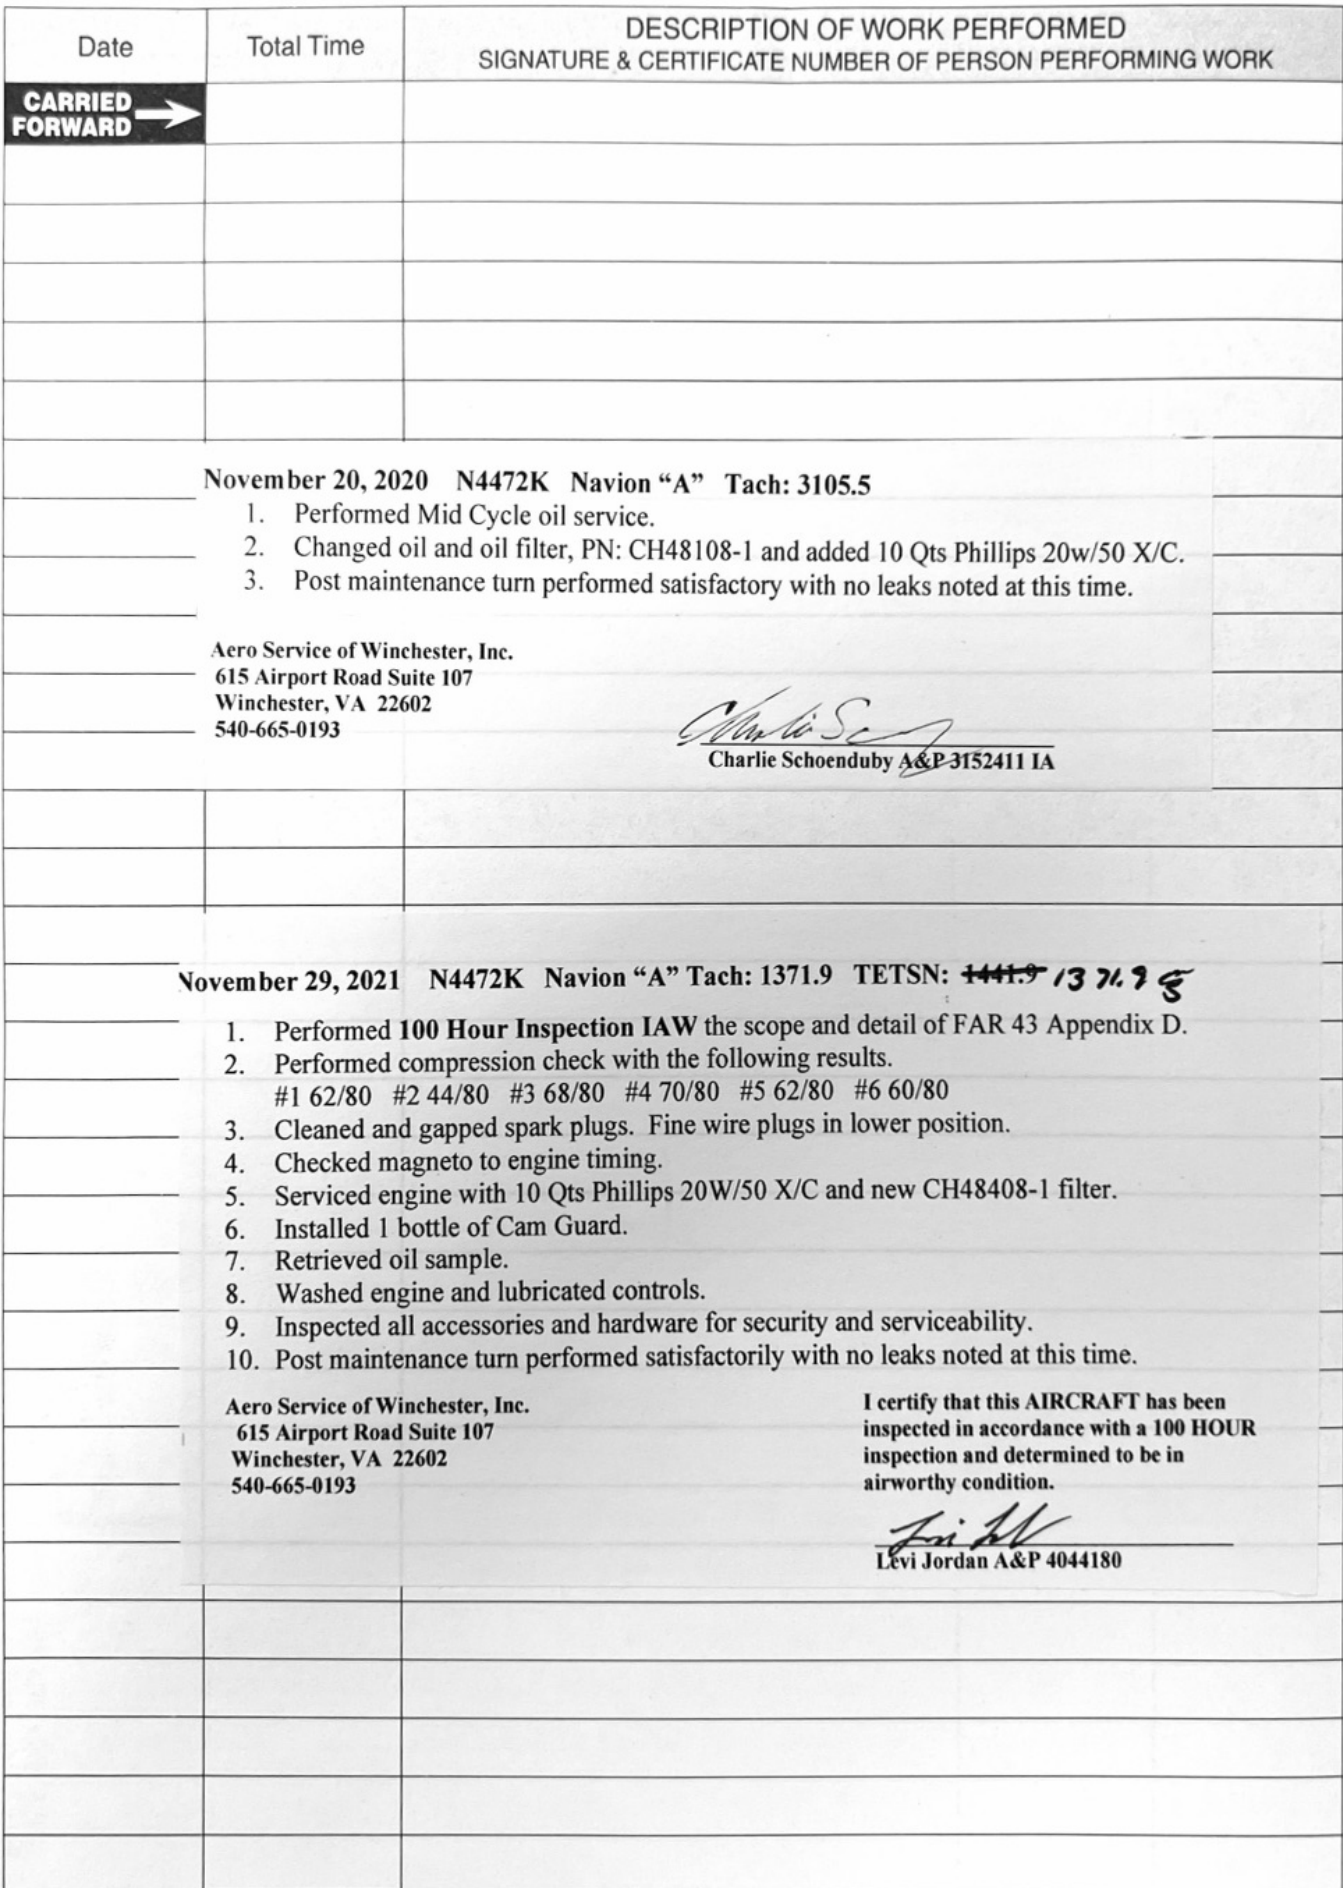 Date
Total Time
DESCRIPTION OF WORK PERFORMED
SIGNATURE & CERTIFICATE NUMBER OF PERSON PERFORMING WORK
CARRIED
FORWARD
November 20, 2020 N4472K Navion “A” Tach: 3105.5
1. Performed Mid Cycle oil service.
2. Changed oil and oil filter, PN: CH48108-1 and added 10 Qts Phillips 20w/50 X/C.
3. Post maintenance turn performed satisfactory with no leaks noted at this time.
Aero Service of Winchester, Inc.
615 Airport Road Suite 107
Winchester, VA 22602
540-665-0193
Charlie Schoenduby A&P 3152411 IA
November 29, 2021 N4472K Navion “A” Tach: 1371.9 TETSN: 1441.9 1371.9
1. Performed 100 Hour Inspection IAW the scope and detail of FAR 43 Appendix D.
2. Performed compression check with the following results.
#1 62/80 #2 44/80 #3 68/80 #4 70/80 #5 62/80 #6 60/80
3. Cleaned and gapped spark plugs. Fine wire plugs in lower position.
4. Checked magneto to engine timing.
5. Serviced engine with 10 Qts Phillips 20W/50 X/C and new CH48408-1 filter.
6. Installed 1 bottle of Cam Guard.
7. Retrieved oil sample.
8. Washed engine and lubricated controls.
9. Inspected all accessories and hardware for security and serviceability.
10. Post maintenance turn performed satisfactorily with no leaks noted at this time.
Aero Service of Winchester, Inc.
615 Airport Road Suite 107
Winchester, VA 22602
540-665-0193
I certify that this AIRCRAFT has been
inspected in accordance with a 100 HOUR
inspection and determined to be in
airworthy condition.
Levi Jordan A&P 4044180